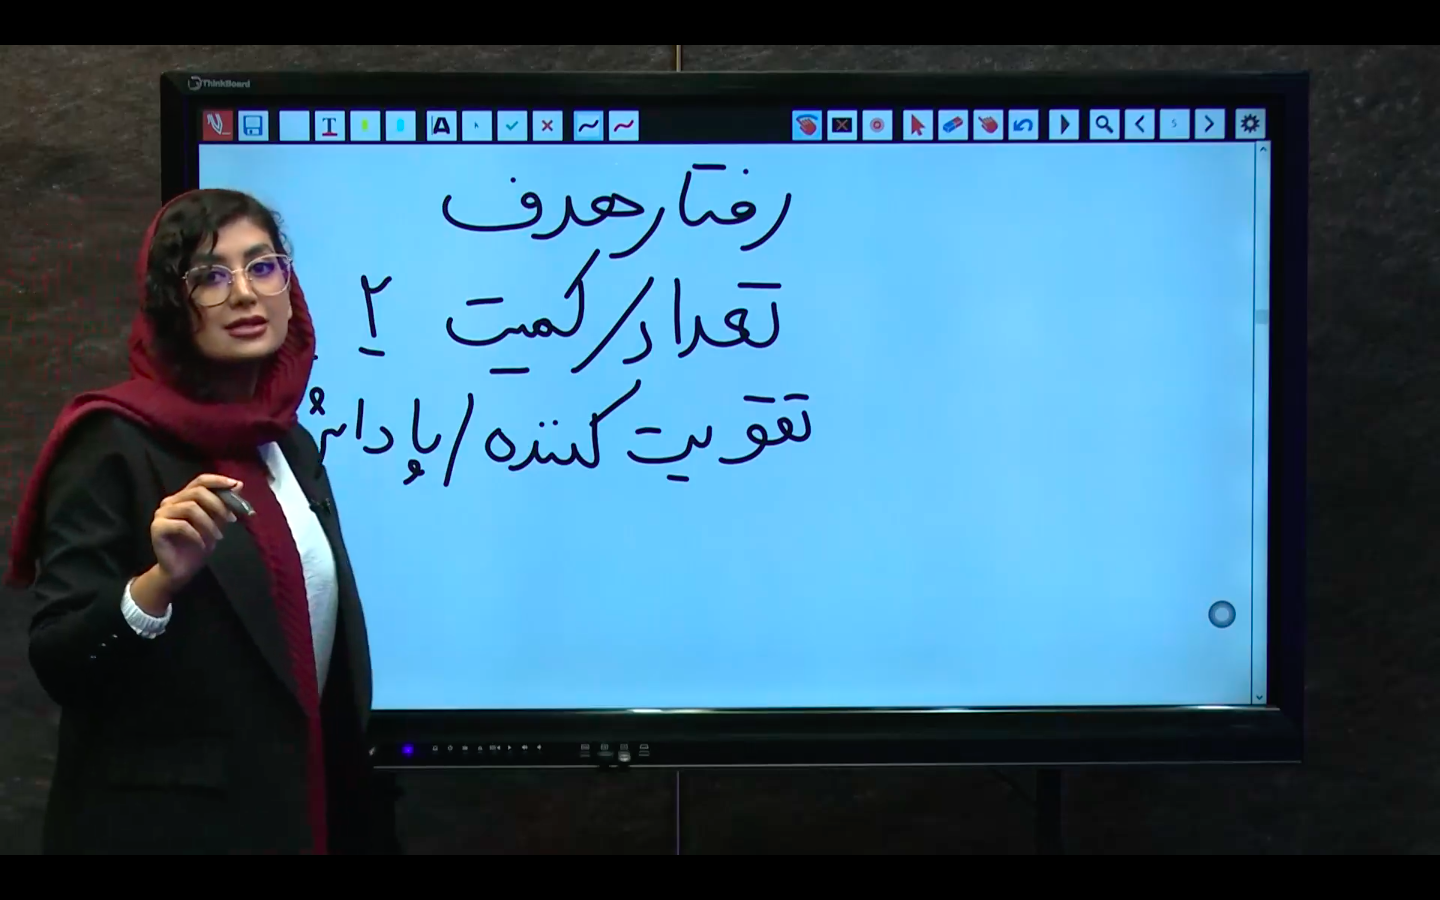 ThinkBoard
رفتار هدف
تعداد/کمیت ۲
تقویت کننده/پاداش